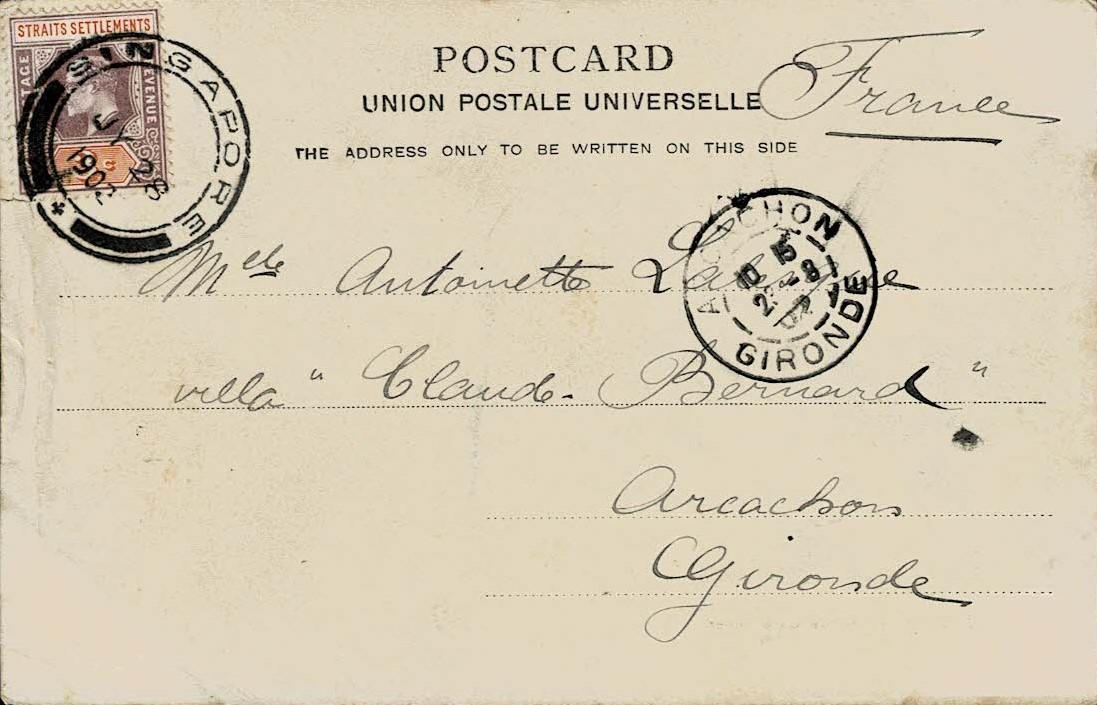 STRAITS SETTLEMENTS
SINGAPORE
JY 28
1902
POSTCARD
UNION POSTALE UNIVERSELLE
France
THE ADDRESS ONLY TO BE WRITTEN ON THIS SIDE
ARCACHON
10 15
GIRONDE
Melle Antoinette
villa " Claude-Bernard "
Arcachon
Gironde